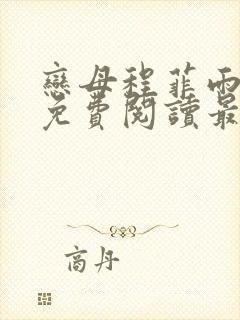 戀母程菲雨
免費閱讀最
商丹